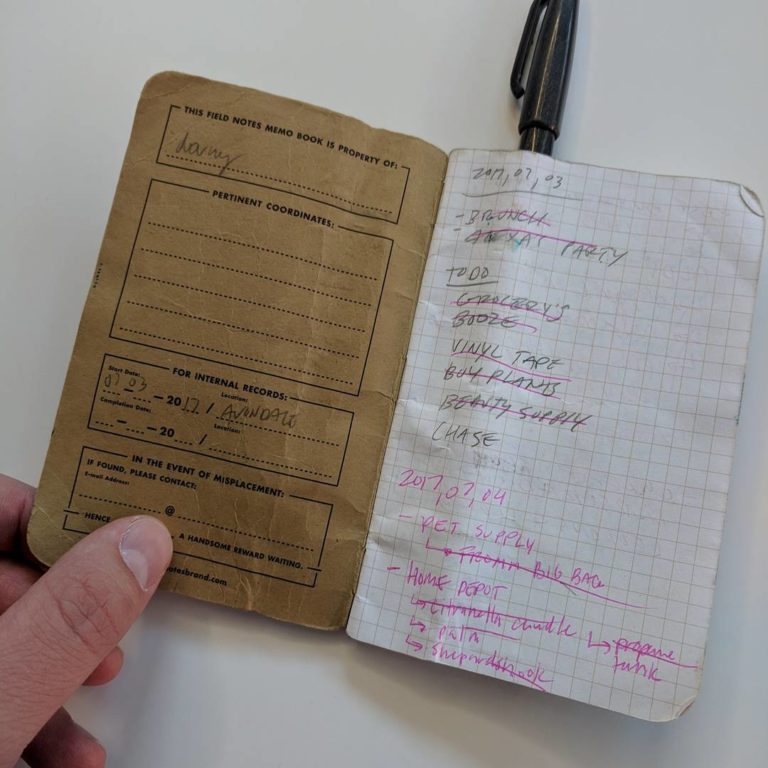 THIS FIELD NOTES MEMO BOOK IS PROPERTY OF:
PERTINENT COORDINATES:
FOR INTERNAL RECORDS:
Start Date:
Location:
07 03 - 2017 / AVONDALE
Completion Date:
Location:
- - 20 /
IN THE EVENT OF MISPLACEMENT:
IF FOUND, PLEASE CONTACT:
E-mail Address:
@
HENCE
A HANDSOME REWARD WAITING.
otesbrand.com
2017, 07, 03
- BRUNCH
- PARTY
TODO
GROCERY'S
BOOZE
VINYL TAPE
BUY PLANTS
BEAUTY SUPPLY
CHASE
2017, 07, 04
- PET SUPPLY
↳ FROMM BIG BAG
- HOME DEPOT
↳ Citronella candle
↳ propane tank
↳ palm
↳ Shepards hook